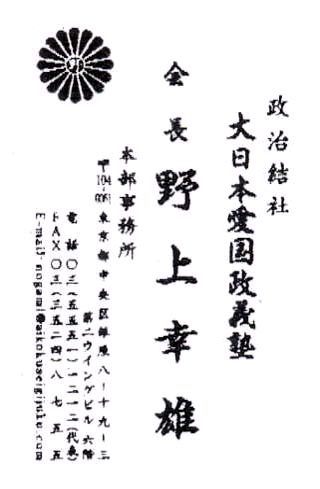 政治結社
大日本愛国政義塾
会長 野上幸雄
本部事務所
〒104-0061 東京都中央区銀座八ー十九ー三
第二ウイングビル 六階
電話 〇三(五五五一)一二一二(代表)
FAX 〇三(三五二四)八七五五
E-mail: nogami@aikokuseigijuku.com
野